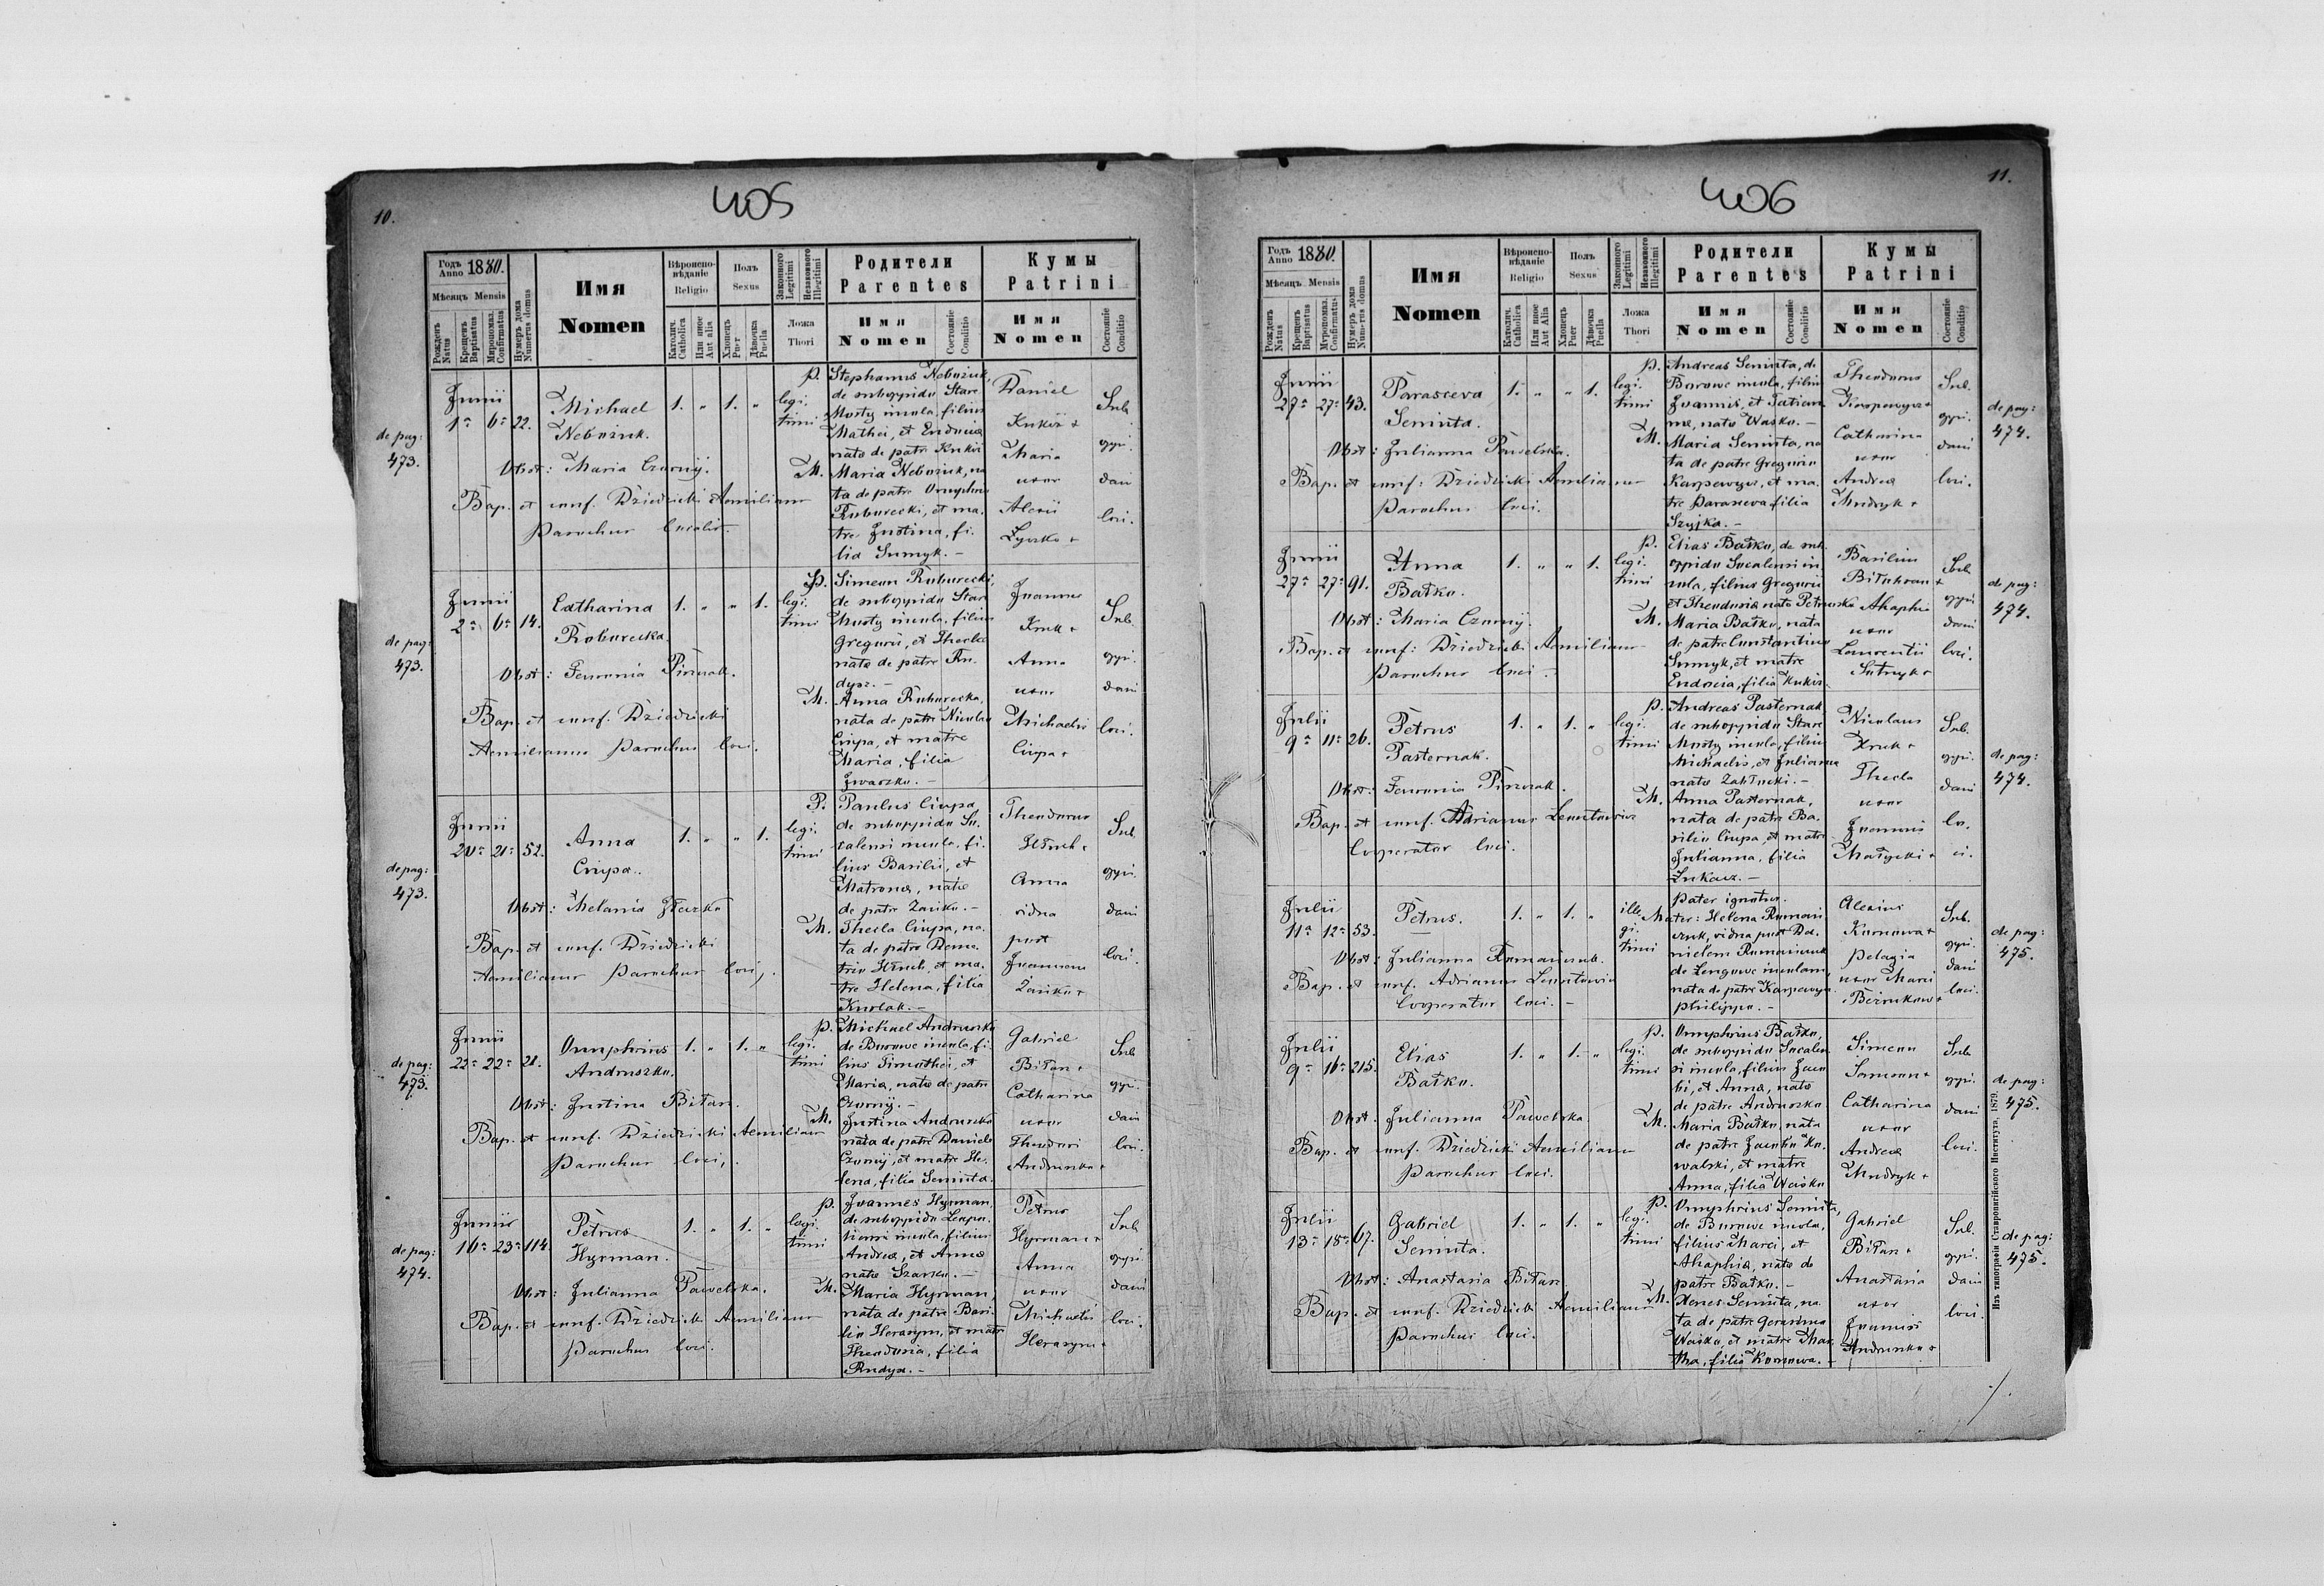 10.
405
Годъ Anno 1880.
Мѣсяцъ Mensis
Рожденъ Natus
Крещенъ Baptisatus
Мѵропомаз. Confirmatus
Нумеръ дома Numerus domus
Имя
Nomen
Вѣроиспо-
вѣданіе
Religio
Католич. Catholica
Или иное Aut alia
Полъ
Sexus
Хлопецъ Puer
Дѣвочка Puella
Законного Legitimi
Незаконного Illegitimi
Ложа
Thori
Родители
Parentes
Имя
Nomen
Состояніе Conditio
Кумы
Patrini
Имя
Nomen
Состояніе Conditio
de pag:
473.
Junii
1a 6a 22.
Michael
1. „ 1. „
legi.
timi
Obst: Maria Czornyj.
Bap. et conf. Dziedzicki Aemilianus
Parochus localis.
P. Stephanus
de suboppido Stare
Mosty incola, filius
Mathei, et Eudocia
nata de patre Kukiz
M. Maria
ta de patre Onuphrio
Roburecki, et ma.
tre Justina, fi.
lia Sumyk. –
Daniel
Kukiz +
Maria
uxor
Alexii
Sub
oppi.
dani
loci.
de pag:
473.
Junii
2a 6a 14.
Catharina
Roburecka
1. „ „ 1.
legi.
timi
Obst: Fevronia Pirozak.
Bap. et conf. Dziedzicki
Aemilianus Parochus loci.
P. Simeon Roburecki,
de suboppido Stare
Mosty incola, filius
Gregorii, et Thecla
nata de patre Ru.
dyx. –
M. Anna Roburecka,
nata de patre Nicolao
Ciupa, et matre
Maria, filia
Iwaszko. –
Joannes
Kruk +
Anna
uxor
Michaelis
Ciupa +
Sub.
oppi.
dani
loci.
de pag:
473.
Junii
20a 21a 52.
Anna
Ciupa.
1. „ „ 1.
legi.
timi
Obst: Melania
Bap. et conf. Dziedzicki
Aemilianus Parochus loci,
P. Paulus Ciupa
de suboppido So.
calensi incola, fi.
lius Basilii, et
Matrona, nata
de patre Zaiko. –
M. Thecla Ciupa, na.
ta de patre Deme.
trio Hłuch, et ma.
tre Helena, filia
Kozlak. –
Theodorus
Hłuch +
Anna
vidua
post
Joannem
Zaiko +
Sub
oppi.
dani
loci.
de pag:
473.
Junii
22a 22a 21.
Onuphrius
Andruszko.
1. „ 1. „
legi.
timi
Obst: Justina Biłan.
Bap. et conf. Dziedzicki Aemilianus
Parochus loci,
P. Michael Andruszko
de Borowe incola, fi.
lius Timothei, et
Maria, nata de patre
Czornyj. –
M. Justina Andruszko
nata de patre Daniele
Czornyj, et matre He.
lena, filia Seminta.
Gabriel
Biłan +
Catharina
uxor
Theodori
Andruszko +
Sub
oppi.
dani
loci.
de pag:
474.
Junii
16a 23a 114.
Petrus
Hyrman.
1. „ 1. „
legi.
timi
Obst: Julianna Pawelska.
Bap. et conf. Dziedzicki Aemilianus
Parochus loci.
P. Joannes Hyrman,
de suboppido
incola, filius
Andrea, et Anna
nata Szarko. –
M. Maria Hyrman,
nata de patre Basi.
lio Herasym, et matre
Theodosia, filia
Rudyx. –
Petrus
Hyrman +
Anna
uxor
Michaelis
Herasym +
Sub
oppi.
dani
loci.
11.
406
Годъ Anno 1880.
Мѣсяцъ Mensis
Рожденъ Natus
Крещенъ Baptisatus
Мѵропомаз. Confirmatus
Нумеръ дома Numerus domus
Имя
Nomen
Вѣроиспо-
вѣданіе
Religio
Католич. Catholica
Или иное Aut Alia
Полъ
Sexus
Хлопецъ Puer
Дѣвочка Puella
Законного Legitimi
Незаконного Illegitimi
Ложа
Thori
Родители
Parentes
Имя
Nomen
Состояніе Conditio
Кумы
Patrini
Имя
Nomen
Состояніе Conditio
Junii
27a 27a 43.
Parasceva
Seminta.
1. „ „ 1.
legi.
timi
Obst: Julianna Pawelska.
Bap. et conf: Dziedzicki Aemilianus
Parochus loci.
P. Andreas Seminta, de
Borowe incola, filius
Joannis, et Tatian
na, nata Wasko. –
M. Maria Seminta, na
ta de patre Gregorio
Karpewycz, et ma.
tre Parasceva filia
Szyjka. –
Theodorus
Karpewycz +
Catharina
uxor
Andrea
Mudryk +
Sub.
oppi.
dani
loci.
de pag:
474.
Junii
27a 27a 91.
Anna
Batko.
1. „ „ 1.
legi.
timi
Obst: Maria Czornyj.
Bap. et conf: Dziedzicki Aemilianus
Parochus loci. –
P. Elias Batko, de sub.
oppido Socalensi in.
cola, filius Gregorii
et Theodosia nata Petruszka
M. Maria Batko, nata
de patre Constantino
Sumyk, et matre
Eudocia, filia Kukiz.
Basilius
Ahaphia
uxor
Laurentii
Sub
oppi.
dani
loci.
de pag:
474.
Julii
9a 11a 26.
Petrus
Pasternak.
1. „ 1. „
legi.
timi
Obst: Fevronia Pirozak.
Bap. et conf. Adrianus Leontowicz
Cooperator loci.
P. Andreas Pasternak,
de suboppido Stare
Mosty incola, filius
Michaelis, et Julianna
nata Zabłocki. –
M. Anna Pasternak,
nata de patre Ba.
silio Ciupa, et matre
Julianna, filia
Łukasz. –
Nicolaus
Kruk +
Thecla
uxor
Joannis
Małycki +
Sub.
oppi.
dani
lo.
ci.
de pag:
474.
Julii
11a 12a 53.
Petrus.
1. „ 1. „
ille.
gi.
timi
Obst: Julianna Romaniuk.
Bap. et conf. Adrianus Leontowicz
Cooperator loci. –
Pater ignotus.
Mater: Helena Romani
czuk, vidua post Da.
nielem Romaniczuk
de Zengowe incolam,
nata de patre Karpewycz
Philippo. –
Alexius
Konowa +
Pelagia
uxor Marci
Bezrukow +
Sub.
oppi.
dani
loci.
de pag:
475.
Julii
9a 16a 215.
Elias
Batko.
1. „ 1. „
legi.
timi
Obst. Julianna Pawelska
Bap. et conf. Dziedzicki Aemilianus
Parochus loci.
P. Onuphrius Batko,
de suboppido Socalen
si incola, filius Jaco
bi, et Anna, nata
de patre Andruszko
M. Maria Batko, nata
de patre Jacobo Ko.
walski, et matre
Anna, filia Wasko
Simeon
Catharina
uxor
Andrea
Mudryk +
Sub
oppi.
dani
loci.
de pag:
475.
Julii
13a 18a 67.
Gabriel
Seminta.
1. „ 1. „
legi.
timi
Obst: Anastasia Biłan
Bap. et conf. Dziedzicki Aemilianus
Parochus loci.
P. Onuphrius Seminta,
de Borowe incola,
filius Marci, et
Ahaphia, nata de
patre Batko. –
M. Xenes Seminta, na.
ta de patre Gerasimo
Wasko, et matre Mar.
tha, filia Konowa. –
Gabriel
Biłan +
Anastasia
uxor
Joannis
Andruszko +
Sub.
oppi.
dani
loci.
de pag:
475.
Изъ типографіи Ставропигійского Института, 1879.